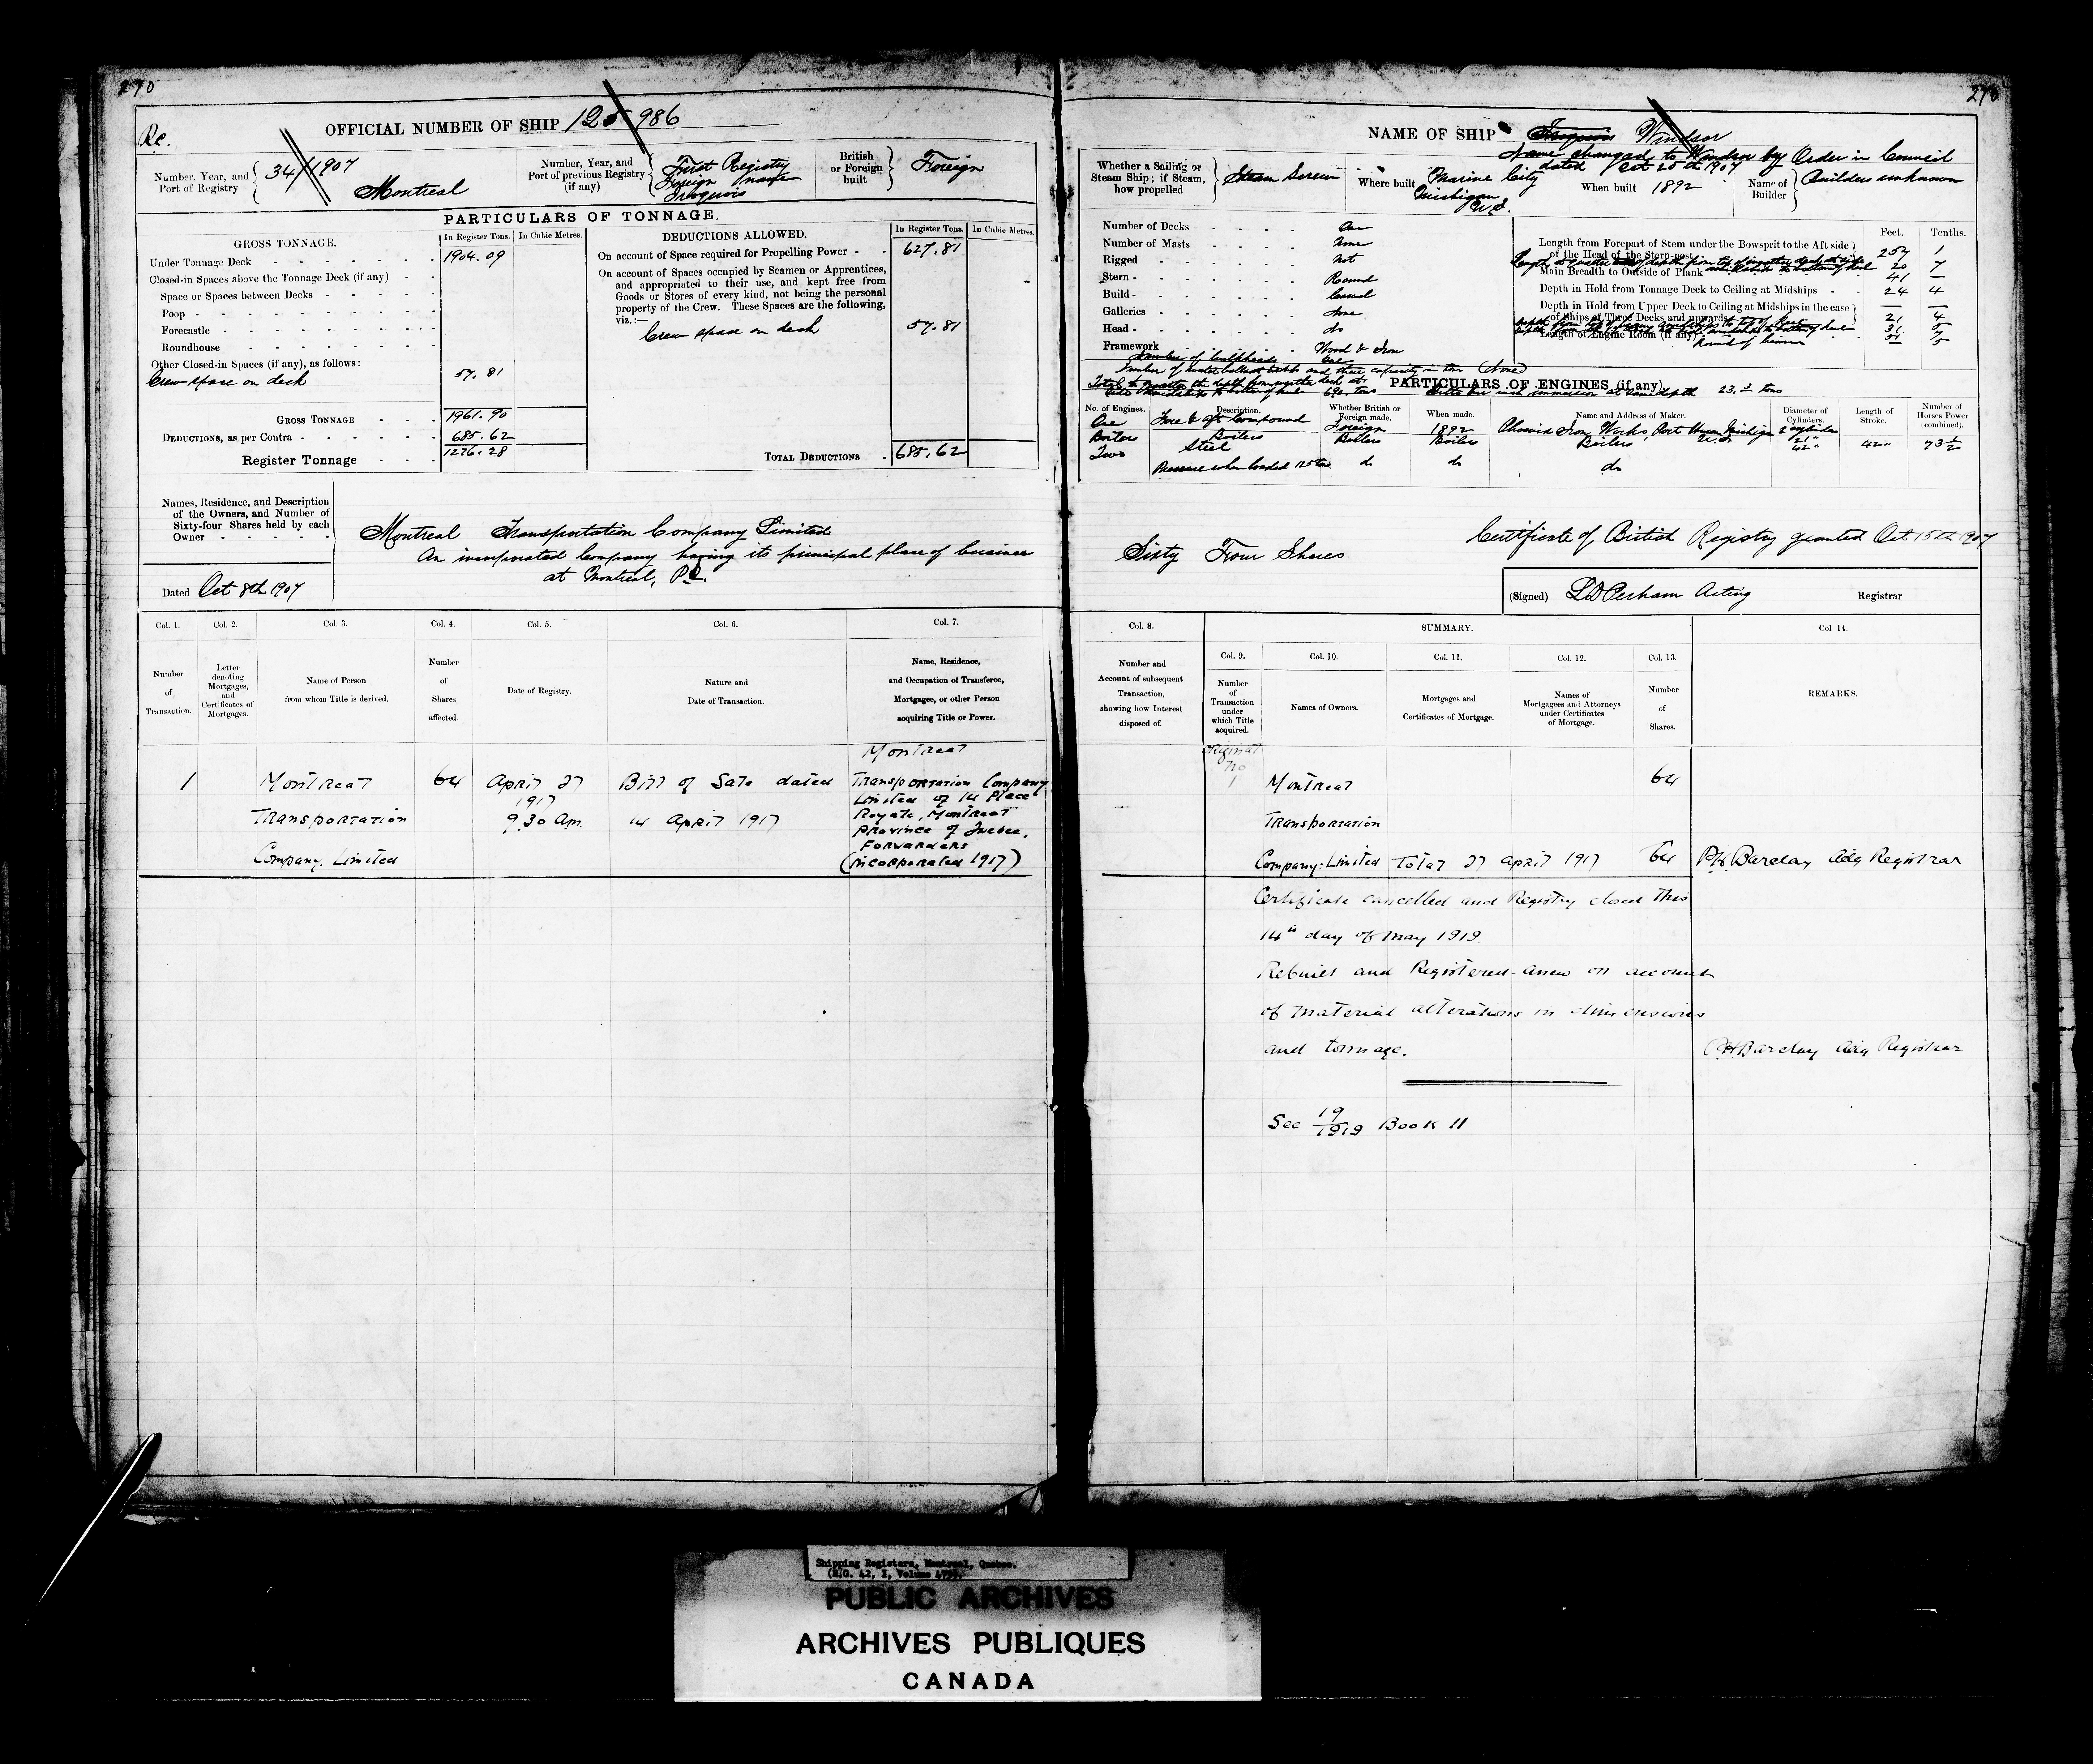 270
Re.
OFFICIAL NUMBER OF SHIP 125986
Number, Year, and Port of Registry 34/1907 Montreal
Number, Year, and Port of previous Registry (if any) First Registry Foreign name Iroquois
British or Foreign built Foreign
PARTICULARS OF TONNAGE.
GROSS TONNAGE. In Register Tons. In Cubic Metres.
Under Tonnage Deck 1904.09
Closed-in Spaces above the Tonnage Deck (if any)
Space or Spaces between Decks
Poop
Forecastle
Roundhouse
Other Closed-in Spaces (if any), as follows:
Crew space on deck 57.81
GROSS TONNAGE 1961.90
DEDUCTIONS, as per Contra 685.62
Register Tonnage 1276.28
DEDUCTIONS ALLOWED. In Register Tons. In Cubic Metres.
On account of Space required for Propelling Power 627.81
On account of Spaces occupied by Seamen or Apprentices,
and appropriated to their use, and kept free from
Goods or Stores of every kind, not being the personal
property of the Crew. These Spaces are the following,
viz.:—
Crew space on deck 57.81
TOTAL DEDUCTIONS 685.62
Names, Residence, and Description
of the Owners, and Number of
Sixty-four Shares held by each
Owner
Montreal Transportation Company Limited
An incorporated Company having its principal place of business
at Montreal, P.Q.
Dated Oct 8th 1907
Col. 1. Col. 2. Col. 3. Col. 4. Col. 5. Col. 6. Col. 7.
Number of Transaction.
Letter denoting Mortgages, and Certificates of Mortgages.
Name of Person from whom Title is derived.
Number of Shares affected.
Date of Registry.
Nature and Date of Transaction.
Name, Residence, and Occupation of Transferee, Mortgagee, or other Person acquiring Title or Power.
Montreal
1 Montreal 64 April 27 Bill of Sale dated Transportation Company
1917 Limited of 14 Place
Transportation 9.30 am. 14 April 1917 Royale, Montreal
Province of Quebec,
Forwarders
Company, Limited (incorporated 1917)
270
NAME OF SHIP Iroquois Windsor
Name changed to Windsor by Order in Council
dated Oct 25th 1907
Whether a Sailing or Steam Ship; if Steam, how propelled Steam Screw
Where built Marine City Michigan U.S.
When built 1892
Name of Builder Builders unknown
Number of Decks One
Number of Masts None
Rigged Not
Stern Round
Build Carvel
Galleries None
Head do
Framework Wood & Iron
Number of bulkheads One
Number of water ballast tanks and their capacity in tons (None)
Feet. Tenths.
Length from Forepart of Stem under the Bowsprit to the Aft side of the Head of the Stern-post 257 1
20 7
Main Breadth to Outside of Plank 41 —
Depth in Hold from Tonnage Deck to Ceiling at Midships 24 4
Depth in Hold from Upper Deck to Ceiling at Midships in the case of Three Decks and upwards — —
21 4
Length of Engine Room (if any)
Round of beam
PARTICULARS OF ENGINES (if any).
690 tons
No. of Engines. Description. Whether British or Foreign made. When made. Name and Address of Maker. Diameter of Cylinders. Length of Stroke. Number of Horses Power (combined).
One Fore & aft Compound Foreign 1892 Phoenix Iron Works, Port Huron Michigan U.S. 2 cylinders 21" 42" 42" 73 1/2
Boilers Boilers Boilers Boilers Boilers
Two Steel
Pressure when loaded do do do
Sixty Four Shares
Certificate of British Registry granted Oct 15th 1907
(Signed) L D Perham Acting Registrar
Col. 8. SUMMARY. Col 14.
Col. 9. Col. 10. Col. 11. Col. 12. Col. 13.
Number and Account of subsequent Transaction, showing how Interest disposed of.
Number of Transaction under which Title acquired.
Names of Owners.
Mortgages and Certificates of Mortgage.
Names of Mortgagees and Attorneys under Certificates of Mortgage.
Number of Shares.
REMARKS.
Original
No
1 Montreal 64
Transportation
Company: Limited Total 27 April 1917 64 P.H. Barclay Actg Registrar
Certificate cancelled and Registry closed this
14th day of May 1919.
Rebuilt and Registered anew on account
of material alterations in dimensions
and tonnage. P.H. Barclay Actg Registrar
See 19/1919 Book 11
Shipping Registers, Montreal, Quebec.
(R.G. 42, I, Volume 475).
PUBLIC ARCHIVES
ARCHIVES PUBLIQUES
CANADA